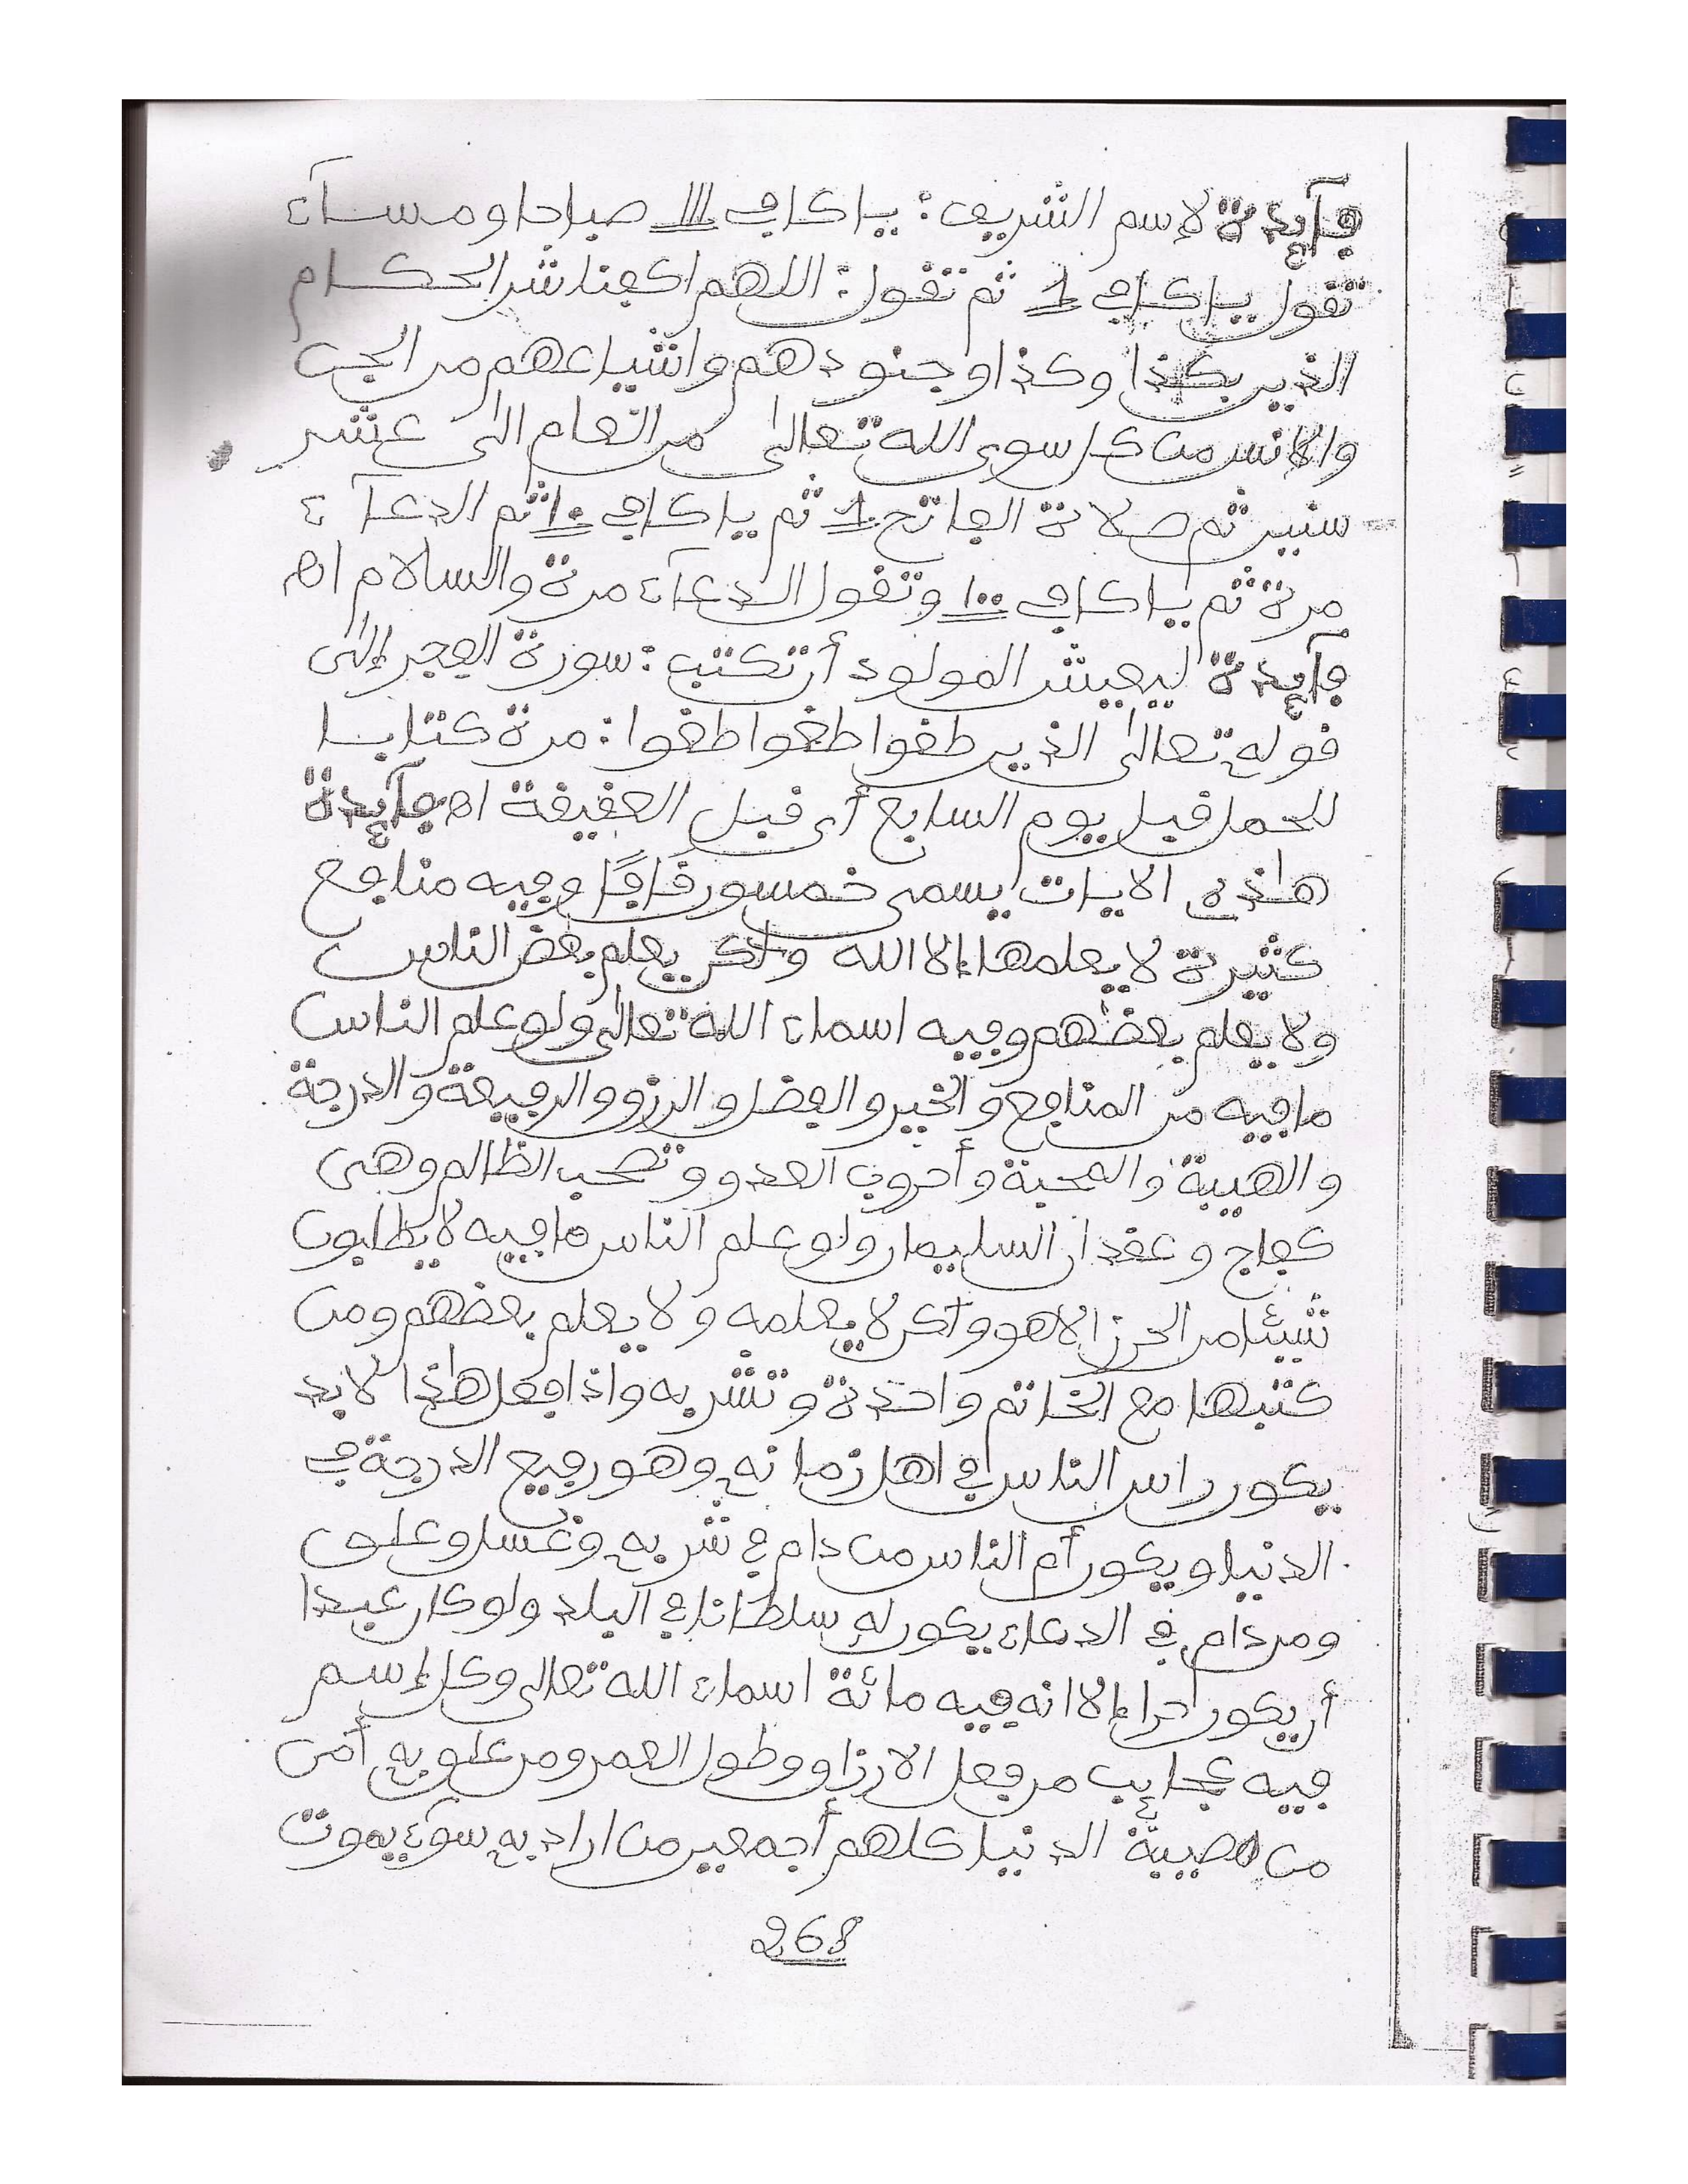 فآيدة لإسم الشريف: يا كافي 111 صباحا ومسآء
تقول يا كافي 1 ثم تقول: اللهم اكفنا شر الحكام
الذين بكذا وكذا وجنودهم واشياعهم من الجن
والانس من كل سوى الله تعالى من العام الى عشر
سنين ثم صلاة الفاتح 1 ثم يا كافي 10 ثم الدعآء
مرة ثم يا كافي 100 وتقول الدعآء مرة والسلام اه
فآيدة ليعيش المولود أن تكتب: سورة الفجر إلى
قوله تعالى الذين طغوا طغوا طغوا: مرة كتابا
للحمل قبل يوم السابع أي قبل العقيقة اه فآيدة
هاذه الايات يسمى خمسون قافا وفيه منافع
كثيرة لا يعلمها إلا الله ولكن يعلم بعض الناس
ولا يعلم بعضهم وفيه اسماء الله تعالى ولو علم الناس
ما فيه من المنافع والخير والفضل والرزق والرفيعة والدرجة
والهيبة والمحبة وأحروب العدو وتصحب الظالم وهي
كفاح وعقدان السليمان ولو علم الناس ما فيه لا يطلبون
شيئا من الحرز إلا هو ولكن لا يعلمه ولا يعلم بعضهم ومن
كتبها مع الخاتم واحدة وتشربه واذا فعل هاذا لا بد
يكون راس الناس في اهل زمانه وهو رفيع الدرجة في
الدنيا ويكون أم الناس من دام في شربه وغسل وعلق
ومن دام في الدعاء يكون له سلطانا في البلد ولو كان عبدا
أن يكون حرا إلا انه فيه مائة اسماء الله تعالى وكل إسم
فيه عجايب من فعل الارزاق وطول العمر ومن علق به أمن
من مصيبة الدنيا كلهم أجمعين من اراد به سوء يموت
268